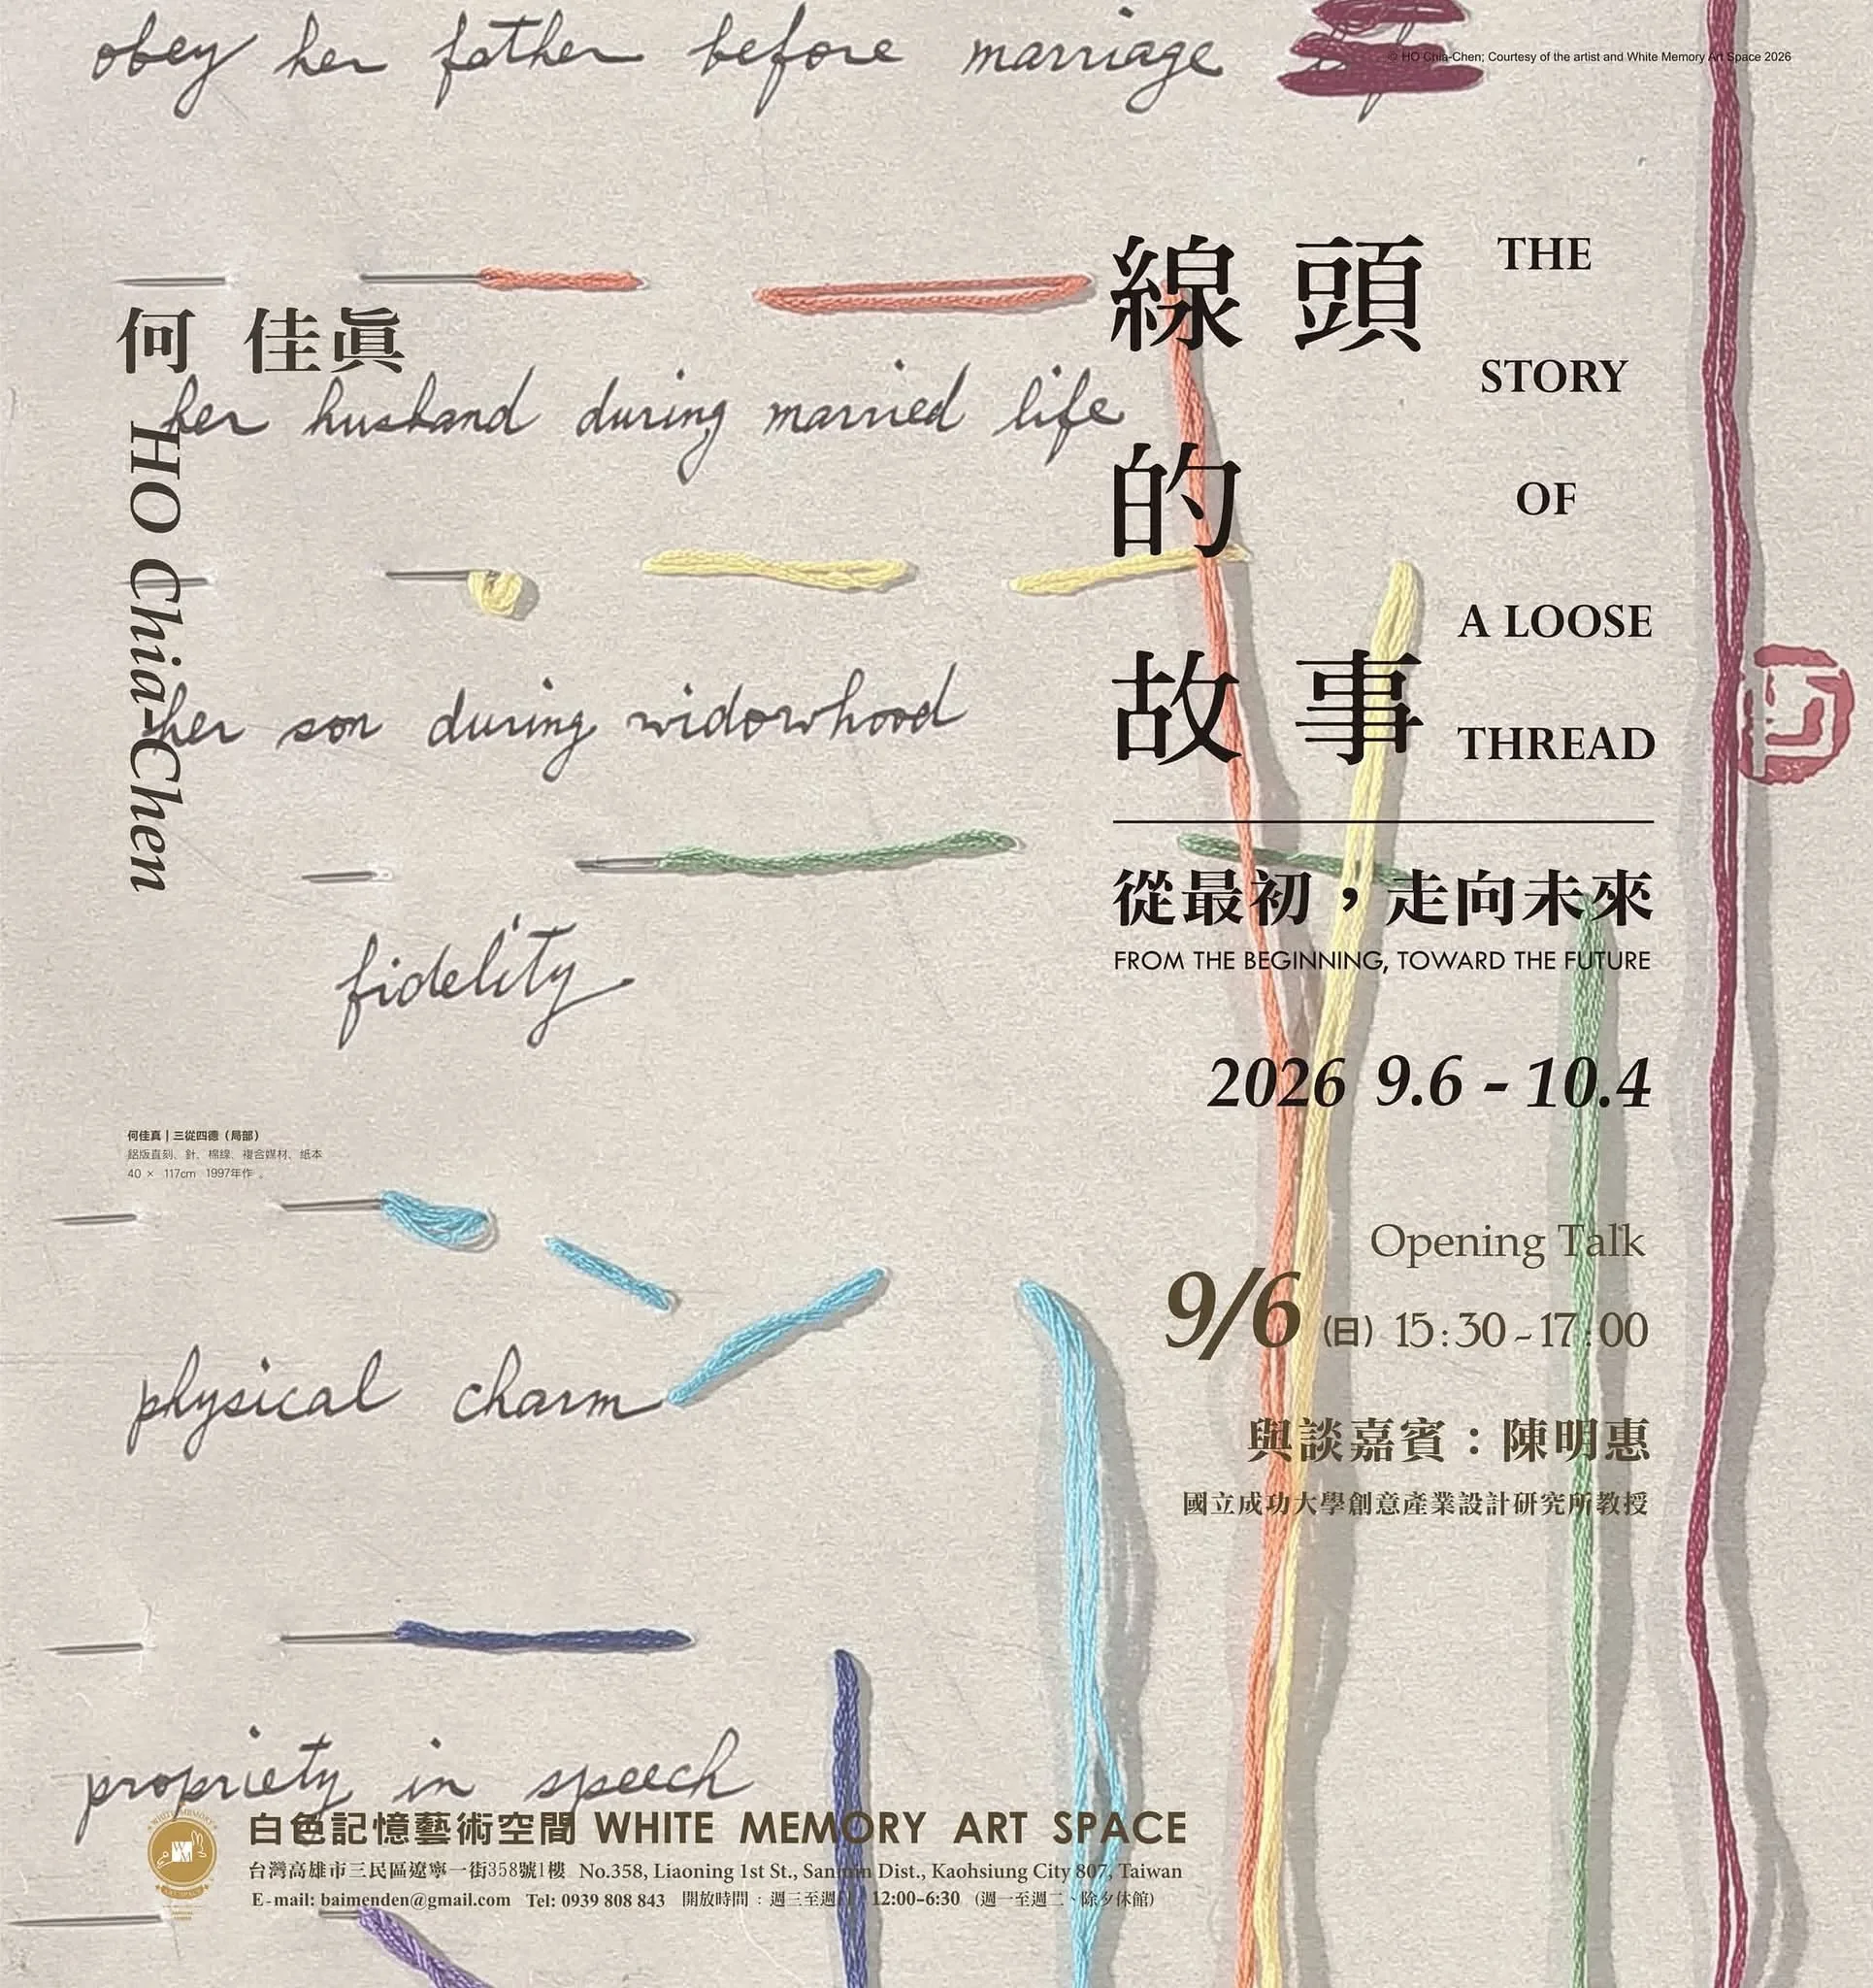 obey her father before marriage
© HO Chia-Chen; Courtesy of the artist and White Memory Art Space 2026
線頭
的
故事
THE
STORY
OF
A LOOSE
THREAD
何佳真
HO Chia-Chen
her husband during married life
her son during widowhood
從最初，走向未來
FROM THE BEGINNING, TOWARD THE FUTURE
fidelity
2026 9.6 - 10.4
何佳真｜三從四德（局部）
鋁版直刻、針、棉線、複合媒材、紙本
40 × 117cm 1997年作。
Opening Talk
9/6 (日) 15:30~17:00
physical charm
與談嘉賓：陳明惠
國立成功大學創意產業設計研究所教授
propriety in speech
白色記憶藝術空間 WHITE MEMORY ART SPACE
台灣高雄市三民區遼寧一街358號1樓 No.358, Liaoning 1st St., Sanmin Dist., Kaohsiung City 807, Taiwan
E-mail: baimenden@gmail.com Tel: 0939 808 843 開放時間：週三至週 12:00-6:30 （週一至週二、除夕休館）